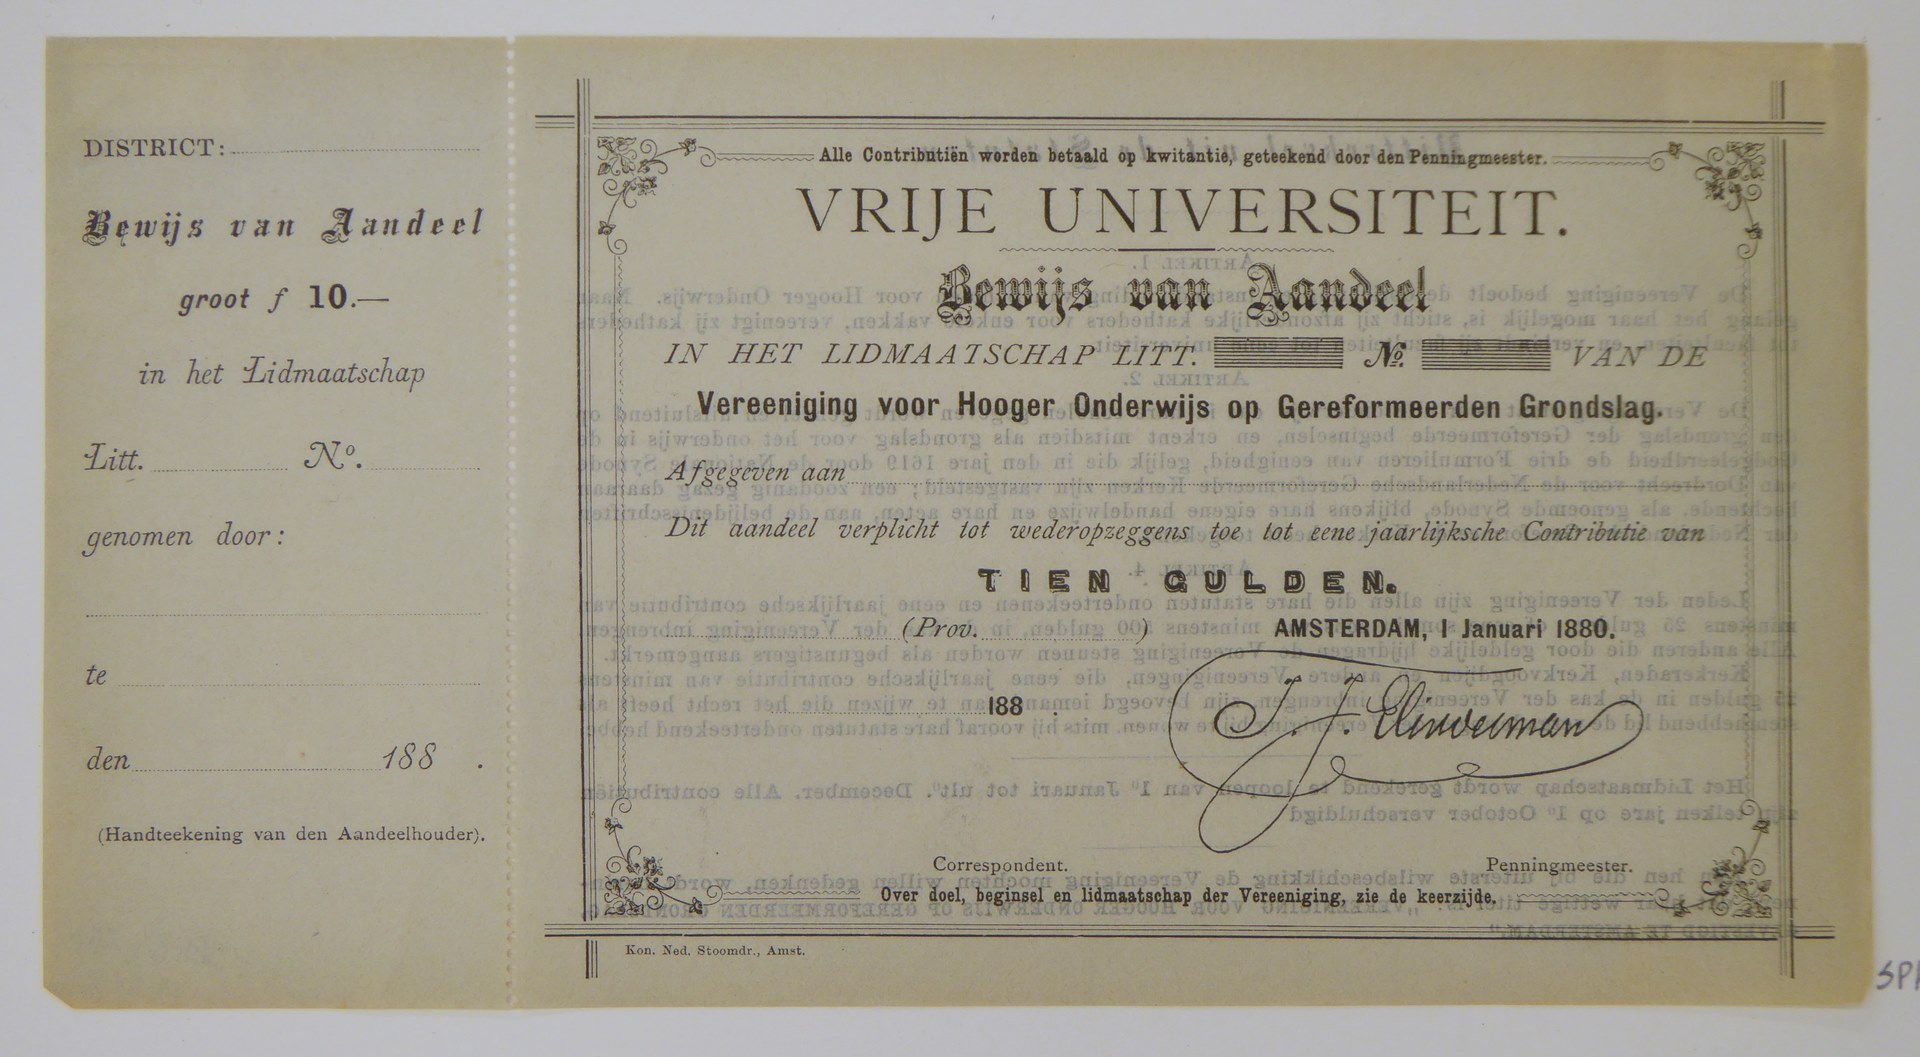 DISTRICT:
Bewijs van Aandeel
groot f 10.—
in het Lidmaatschap
Litt. No.
genomen door:
te
den 188 .
(Handteekening van den Aandeelhouder).
Alle Contributiën worden betaald op kwitantie, geteekend door den Penningmeester.
VRIJE UNIVERSITEIT.
Bewijs van Aandeel
IN HET LIDMAATSCHAP LITT. No. VAN DE
Vereeniging voor Hooger Onderwijs op Gereformeerden Grondslag.
Afgegeven aan
Dit aandeel verplicht tot wederopzeggens toe tot eene jaarlijksche Contributie van
TIEN GULDEN.
(Prov. ) AMSTERDAM, 1 Januari 1880.
188 .
Correspondent. Penningmeester.
Over doel, beginsel en lidmaatschap der Vereeniging, zie de keerzijde.
Kon. Ned. Stoomdr., Amst.